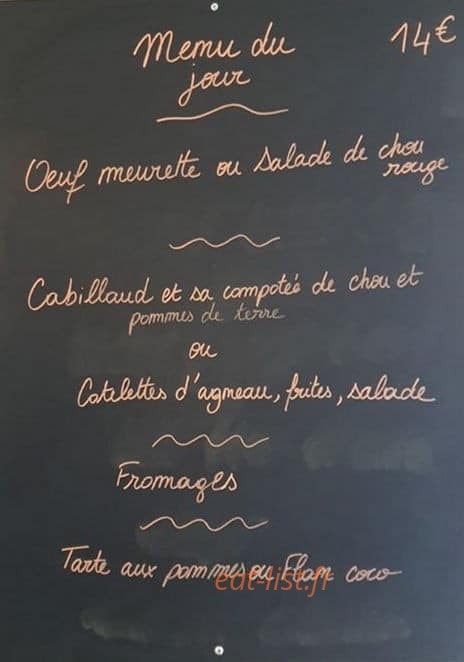 Menu du 14€
jour
Oeuf meurette ou salade de chou
rouge
Cabillaud et sa compotée de chou et
pommes de terre
ou
Cotelettes d'agneau, frites, salade
Fromages
Tarte aux pommes ou Flan coco
eat-list.fr